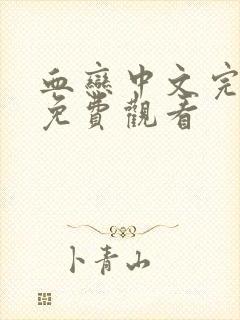 血戀中文完
免費觀看
卜青山